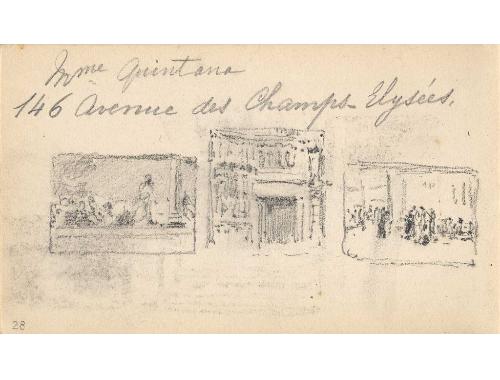 Mme Quintana
146 Avenue des Champs-Elysées.
28